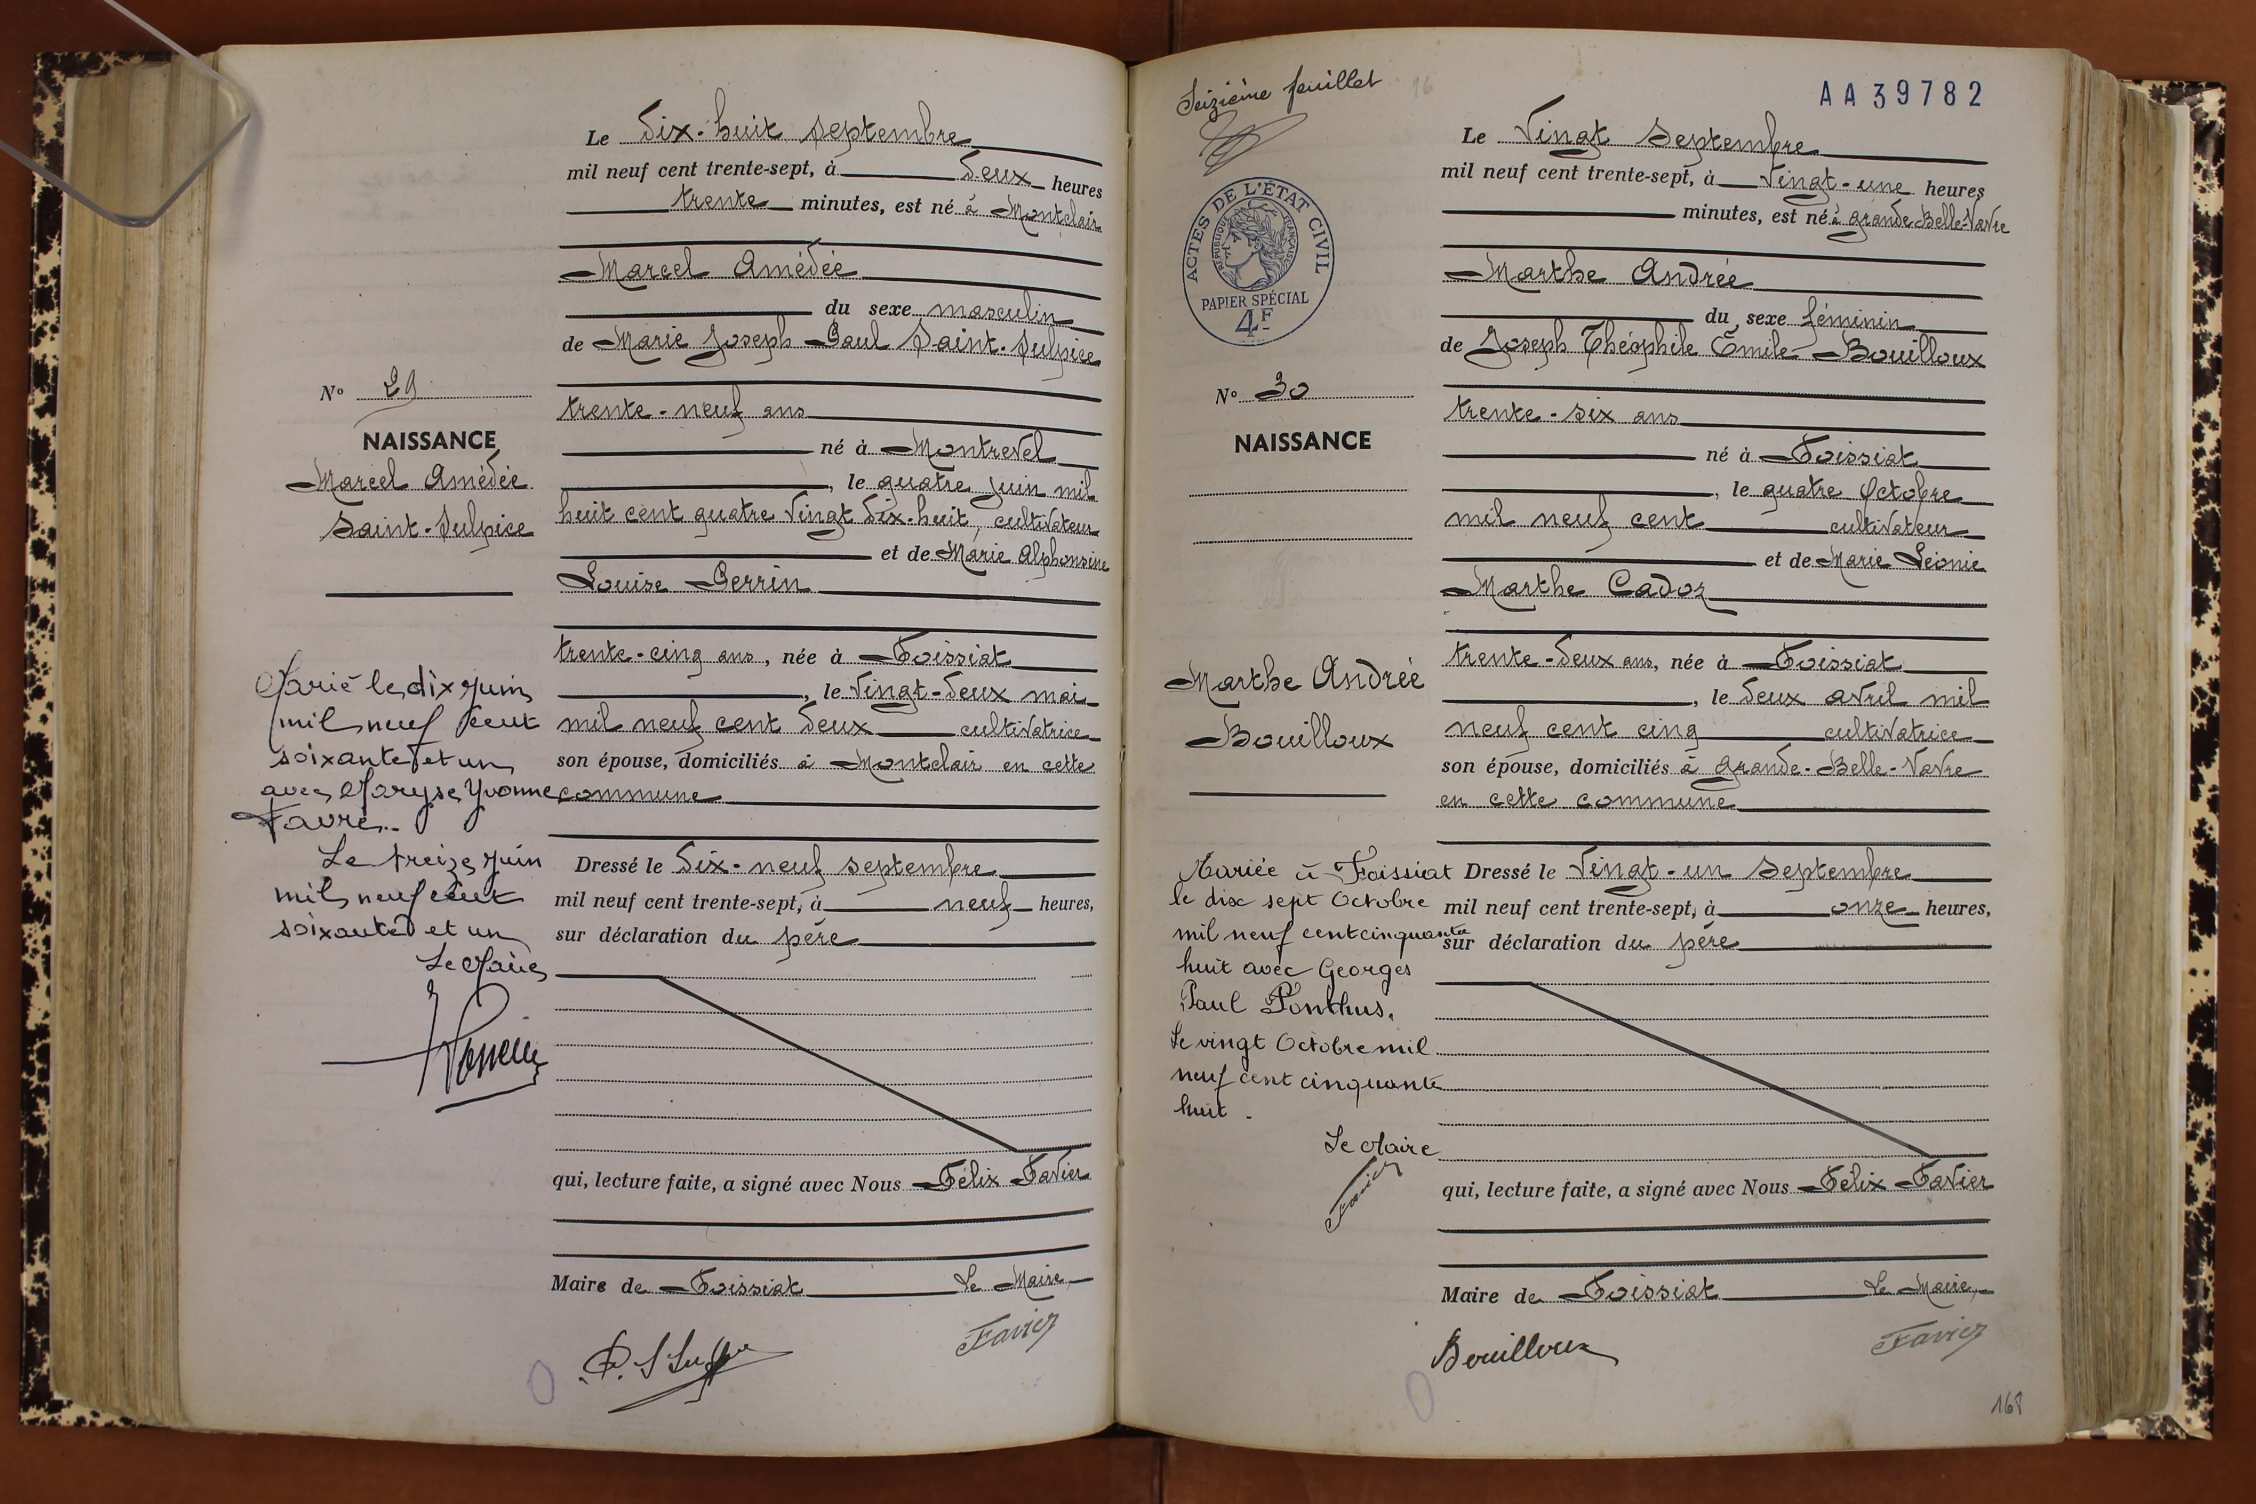 Le dix-huit septembre
mil neuf cent trente-sept, à deux heures
trente minutes, est né à Montclair
Marcel Amédée
du sexe masculin
de Marie Joseph Paul Saint-Sulpice
No 29
trente-neuf ans
NAISSANCE
né à Montrevel
Marcel Amédée
, le quatre juin mil
Saint-Sulpice
huit cent quatre vingt dix-huit, cultivateur
et de Marie Alphonsine
Louise Perrin
trente-cinq ans, née à Foissiat
, le vingt-deux mai
mil neuf cent deux cultivatrice
son épouse, domiciliés à Montclair en cette
commune
Marié le dix juin
mil neuf cent
soixante et un
avec Maryse Yvonne
Favre.
Le treize juin
mil neuf cent
soixante et un
Le Maire
Dressé le dix-neuf septembre
mil neuf cent trente-sept, à neuf heures,
sur déclaration du père
qui, lecture faite, a signé avec Nous Félix Favier
Maire de Foissiat Le Maire,
Favier
Seizième feuillet
16
AA39782
ACTES DE L'ÉTAT CIVIL
RÉPUBLIQUE FRANÇAISE
PAPIER SPÉCIAL
4F
Le Vingt Septembre
mil neuf cent trente-sept, à vingt-une heures
minutes, est né à Grande Belle-Vavre
Marthe Andrée
du sexe féminin
de Joseph Théophile Emile Bouilloux
No 30
trente-six ans
NAISSANCE
né à Foissiat
, le quatre Octobre
mil neuf cent cultivateur
et de Marie Léonie
Marthe Cadoz
trente-deux ans, née à Foissiat
, le deux avril mil
neuf cent cinq cultivatrice
son épouse, domiciliés à Grande-Belle-Vavre
en cette commune
Marthe Andrée
Bouilloux
Mariée à Foissiat
le dix sept Octobre
mil neuf cent cinquante
huit avec Georges
Paul Ponthus.
Le vingt Octobre mil
neuf cent cinquante
huit.
Le Maire
Favier
Dressé le vingt-un Septembre
mil neuf cent trente-sept, à onze heures,
sur déclaration du père
qui, lecture faite, a signé avec Nous Félix Favier
Maire de Foissiat Le Maire,
Bouilloux
Favier
168